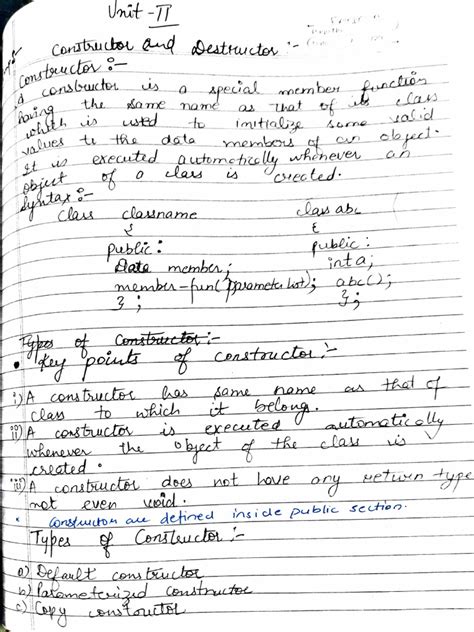 Unit - II
Constructor and Destructor :-
Constructor :-
A constructor is a special member function
having the same name as that of its class
which is used to initialize some valid
values to the data members of an object.
It is executed automatically whenever an
object of a class is created.
Syntax :-
class classname    class abc
{    {
public:    public:
Data member;    int a;
member-fun(parameter list);    abc();
};    };
Types of Constructor :-
• Key points of constructor :-
i) A constructor has same name as that of
class to which it belong.
ii) A constructor is executed automatically
whenever the object of the class is
created.
iii) A constructor does not have any return type
not even void.
* Constructor are defined inside public section.
Types of Constructor :-
a) Default constructor
b) Parameterized constructor
c) Copy constructor